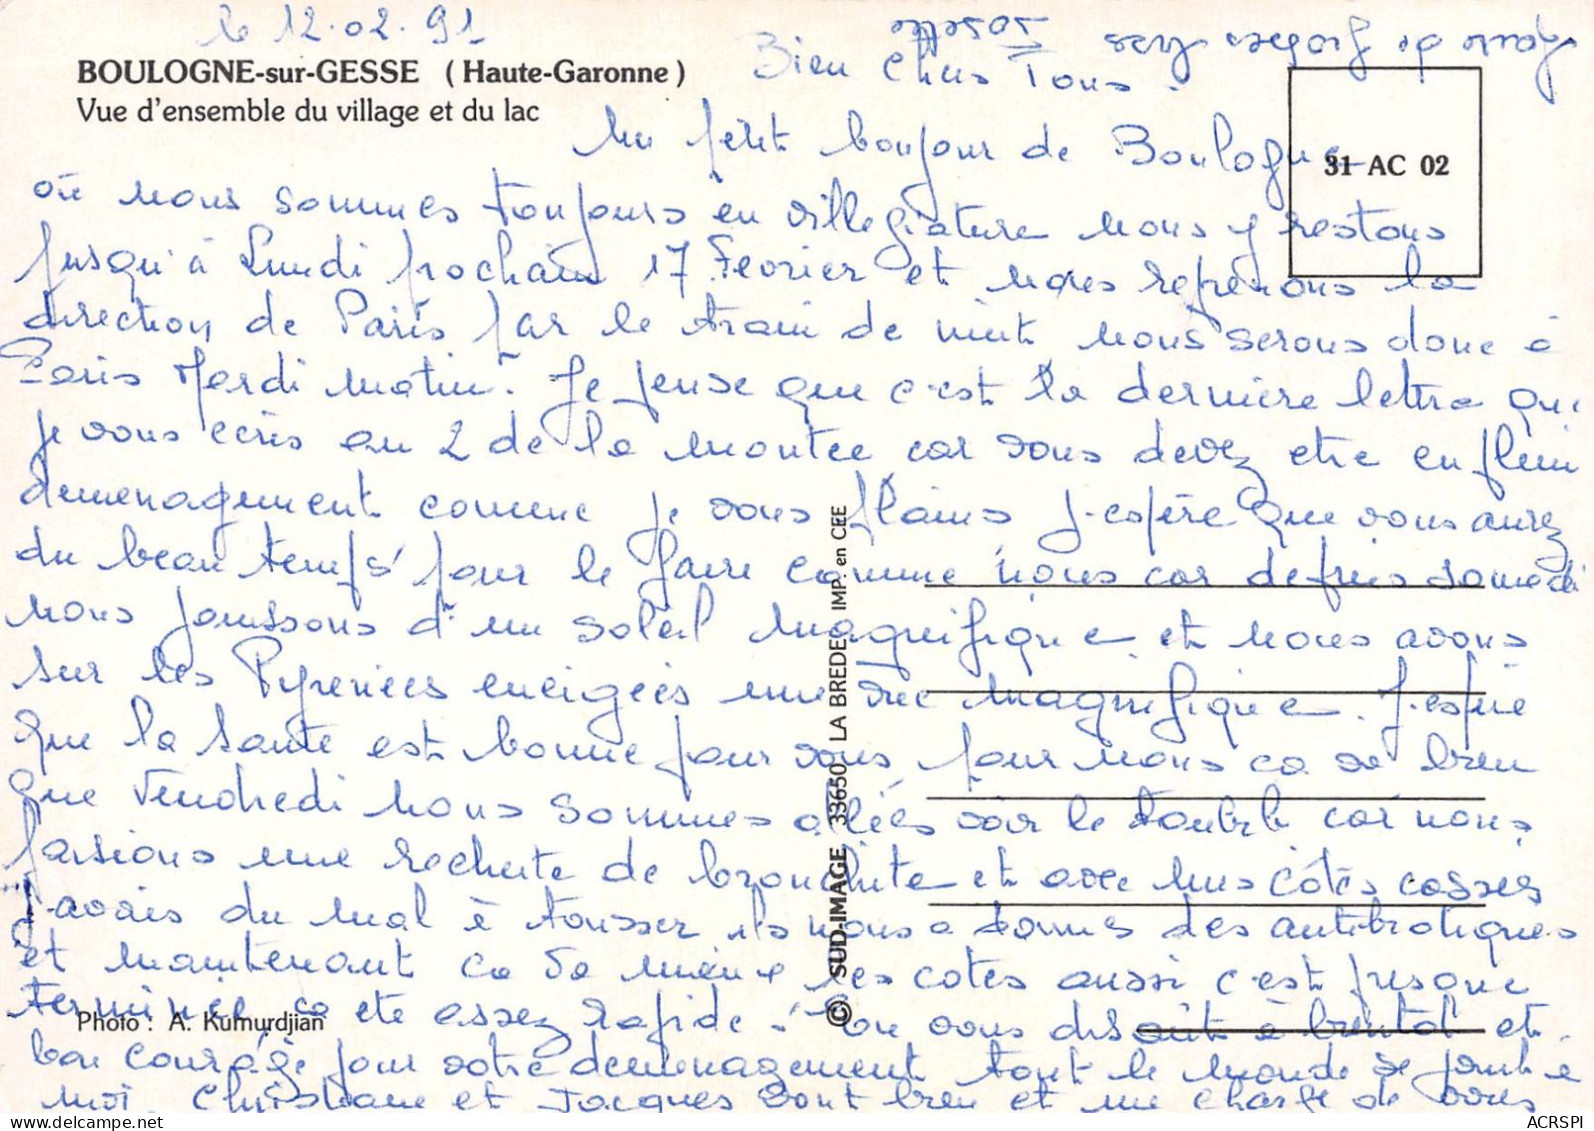 le 12.02.91
BOULOGNE-sur-GESSE (Haute-Garonne)
Vue d'ensemble du village et du lac
Bien Chers Tous.
31 AC 02
Un petit bonjour de Boulogne
où nous sommes toujours en villegiature nous y restons
jusqu'à Lundi prochain 17 Fevrier et nous reprenons le
direction de Paris par le train de nuit nous serons donc à
Paris Mardi matin. Je pense que c'est la derniere lettre que
je vous ecris au 2 de la montee car vous devez etre en plein
demenagement comme je vous plains J'espère que vous aurez
du beau temps pour le faire comme nous car depuis samedi
nous jouissons d'un soleil magnifique et nous avons
sur les Pyrenées eneigées une vue magnifique. J'espère
que la santé est bonne pour vous pour nous ca va bien
que Vendredi nous sommes allées voir le toubib car nous
faisions une rechute de bronchite et avec mes côtes cassés
J'avais du mal à tousser ils nous a donnés des antibiotiques
et maintenant ca va mieux les cotes aussi c'est presque
terminée, ca ete assez rapide. On vous dis à bientôt et
bon courage pour votre demenagement tout le monde se joint à
moi Christiane et Jacques vont bien et me charge de vous
faire de grosses bises
Josette
Photo : A. Kumurdjian
© SUD-IMAGE 33650 LA BREDE IMP. en CEE
ACRSPI